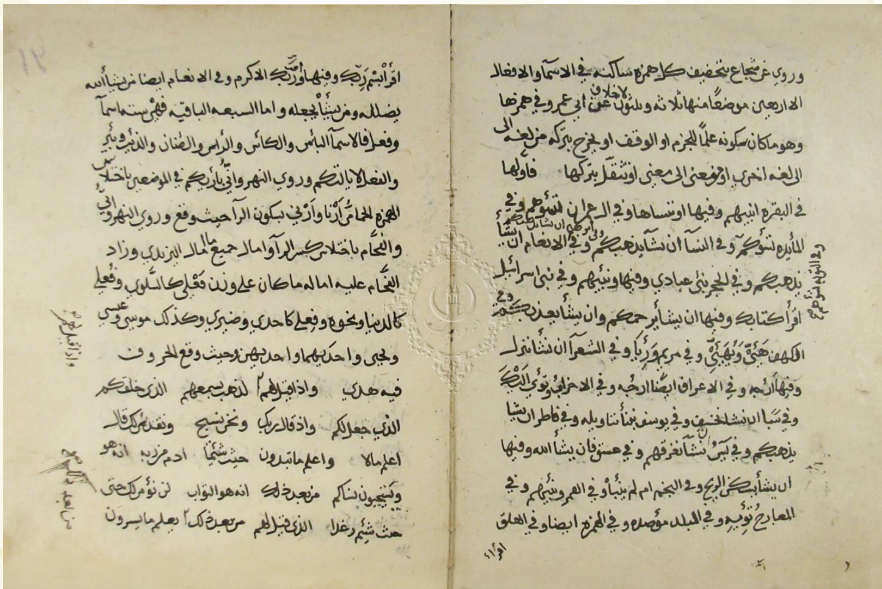 وروي عن شجاع بتخفيف كل همزة ساكنة في الاسماء والافعال
الا اربعين موضعا منها ثلاثة وثلثون لاخلاف عن ابي عمرو في همزها
وهو ما كان سكونه علما للجزم او الوقف او يخرج بتركه من لغة
الى لغة اخرى او معنى الى معنى او تثقل بتركها فاولها
في البقره انبيهم وفيها او ننساها وفي ال عمران تسؤهم وفي
المايده تسؤكم وفي النسا ان يشا يذهبكم وفي الانعام ان يشا
يذهبكم وفي الحجر نبئ عبادي وفيها ونبيهم وفي بني اسرائيل
اقرا كتابك وفيها ان يشا يرحمكم وان يشا يعذبكم وفي
الكهف هيئ ويهيئ وفي مريم ورئيا وفي الشعرا ان نشا ننزل
وفيها ارجه وفي الاعراف ايضا ارجه وفي الاحزاب وتؤي اليك
وفي سبا ان نشا نخسف وفي يوسف نبئنا بتاويله وفي فاطر ان يشا
يذهبكم وفي يس نشا نغرقهم وفي حمعسق فان يشا الله وفيها
ان يشا يسكن الريح وفي النجم ام لم ينبا وفي القمر ونبيهم وفي
المعارج تؤيه وفي البلد مؤصده وفي الهمزة ايضا وفي العلق
اقرا
١٢
اقرا باسم ربك وفيها اقرا وربك الاكرم وفي الانعام ايضا من يشا الله
يضلله ومن يشا يجعله واما السبعه الباقيه فهي ستة اسما
وفعل فالاسما الباس والكاس والراس والضان والذئب وبئر
والفعل لا يالتكم وروي النهرواني بارئكم في الموضعين باختلاس
الهمزه الحمامي ارنا وارني بسكون الرا حيث وقع وروي النهرواني
والفحام باختلاس كسر الرا واماله جميع ما اماله اليزيدي وزاد
الفحام عليه اماله ما كان على وزن فعلى كالسلوي وفعلى
كالدنيا ونحوه وفعلى كاحدي وضيزي وكذلك موسى وعيسى
ويحيى واحديهما واحديهن وحيث وقع الحروف
فيه هدي واذا قيل لهم لذهب بسمعهم الذي خلقكم
الذي جعل لكم واذ قال ربك ونحن نسبح ونقدس لك قال
اعلم مالا واعلم ما تبدون حيث شئتما ادم من ربه انه هو
ويستحيون نساكم من بعد ذلك انه هو التواب لن نؤمن لك حتى
حيث شئتم رغدا الذي قيل لهم من بعد ذلك يعلم ما يسرون
واذا قيل لهم
من بعد ذلك